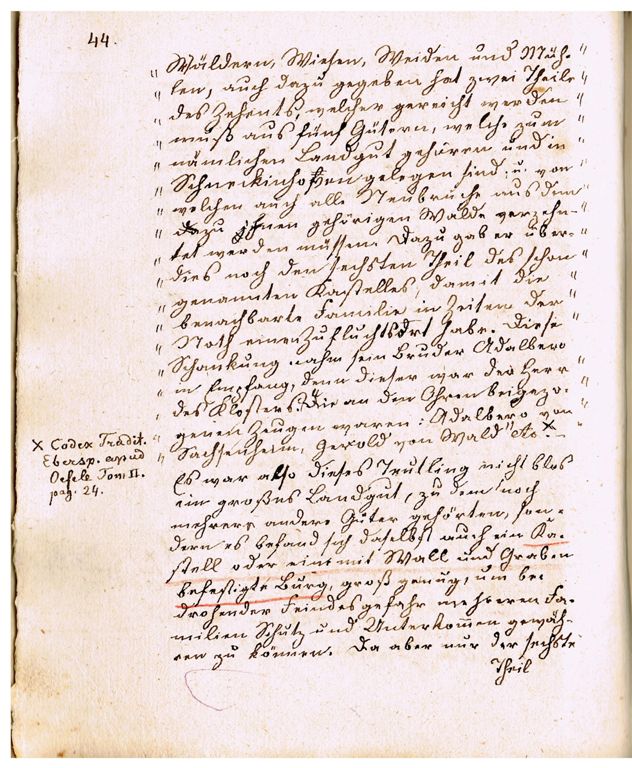 44.
"Wäldern, Wiesen, Weiden und Müh-"
"len, auch dazu gegeben hat zwei Theile"
"des Zehents, welcher gereicht werden"
"muß aus fünf Gütern, welche zum"
"nämlichen Landgut gehören und in"
"Schneckinhofen gelegen sind, u. von"
"welchen auch alle Neubrüche aus dem"
"dazu ihnen gehörigen Walde verzehn-"
"tet werden müssen. Dazu gab er über-"
"dies noch den sechsten Theil des schon"
"genannten Kastelles, damit die"
"benachbarte Familie in Zeiten der"
"Noth einen Zufluchtsort habe. Diese"
"Schankung nahm sein Bruder Adalbero
"in Empfang, denn dieser war der Herr
"des Klosters. Die an den Ohren beigezo-"
"genen Zeugen waren: Adalbero von"
"Sachsenheim, Gerold von Wald" etc. X –
X Codex Tradit.
Ebersp. apud
Oefele Tom II.
pag. 24.
Es war also dieses Trutling nicht blos
ein großes Landgut, zu dem noch
mehrere andere Güter gehörten, son-
dern es befand sich daselbst auch ein Ka-
stell oder eine mit Wall und Graben
befestigte Burg, groß genug, um bei
drohender Feindesgefahr mehreren Fa-
milien Schutz und Unterkommen gewäh-
ren zu können. Da aber nur der sechste
Theil